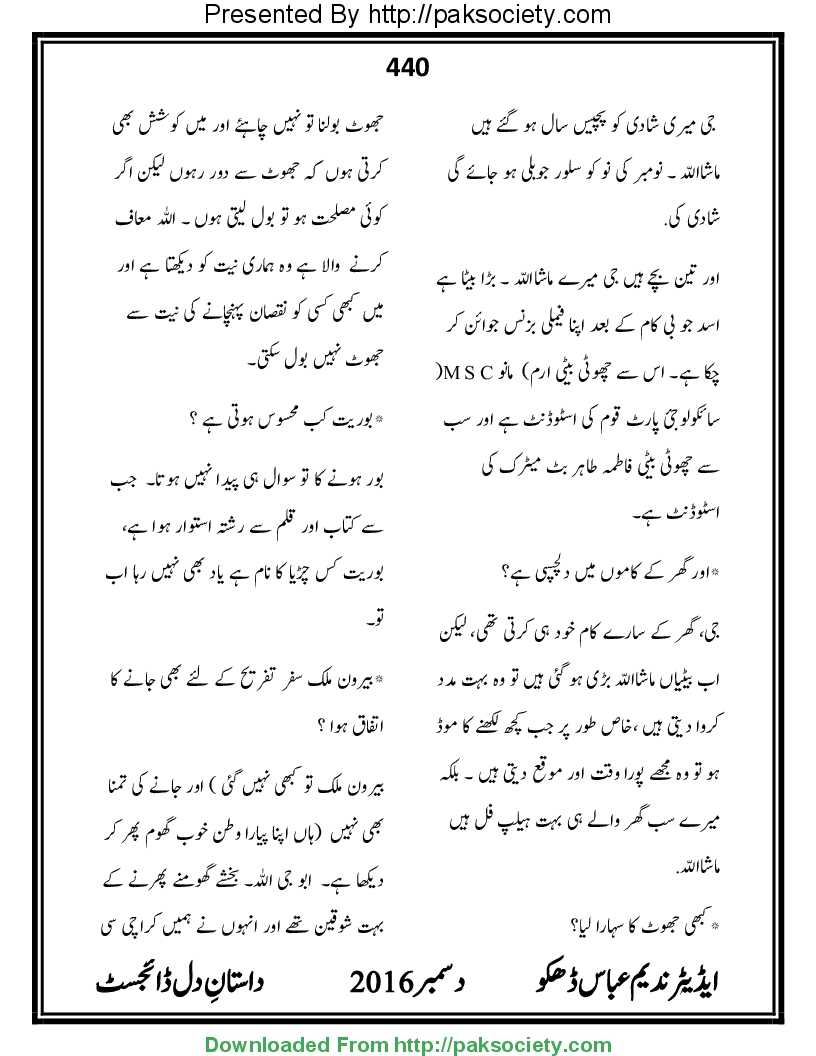 Presented By http://paksociety.com
440
جی میری شادی کو پچیس سال ہو گئے ہیں
ماشااللہ ۔ نومبر کی نو کو سلور جوبلی ہو جائے گی
شادی کی.
اور تین بچے ہیں جی میرے ماشااللہ ۔ بڑا بیٹا ہے
اسد جو بی کام کے بعد اپنا فیملی بزنس جوائن کر
چکا ہے۔ اس سے چھوٹی بیٹی ارم) مانو M S C(
سائکولوجیٔ پارٹ قوم کی اسٹوڈنٹ ہے اور سب
سے چھوٹی بیٹی فاطمہ طاہر بٹ میٹرک کی
اسٹوڈنٹ ہے۔
*اور گھر کے کاموں میں دلچسپی ہے؟
جی، گھر کے سارے کام خود ہی کرتی تھی، لیکن
اب بیٹیاں ماشااللہ بڑی ہو گئی ہیں تو وہ بہت مدد
کروا دیتی ہیں ،خاص طور پر جب کچھ لکھنے کا موڈ
ہو تو وہ مجھے پورا وقت اور موقع دیتی ہیں ۔ بلکہ
میرے سب گھر والے ہی بہت ہیلپ فل ہیں
ماشااللہ.
* کبھی جھوٹ کا سہارا لیا؟
جھوٹ بولنا تو نہیں چاہئے اور میں کوشش بھی
کرتی ہوں کہ جھوٹ سے دور رہوں لیکن اگر
کوئی مصلحت ہو تو بول لیتی ہوں ۔ اللہ معاف
کرنے والا ہے وہ ہماری نیت کو دیکھتا ہے اور
میں کبھی کسی کو نقصان پہنچانے کی نیت سے
جھوٹ نہیں بول سکتی۔
*بوریت کب محسوس ہوتی ہے ؟
بور ہونے کا تو سوال ہی پیدا نہیں ہوتا۔ جب
سے کتاب اور قلم سے رشتہ استوار ہوا ہے،
بوریت کس چڑیا کا نام ہے یاد بھی نہیں رہا اب
تو۔
*بیرون ملک سفر تفریح کے لئے بھی جانے کا
اتفاق ہوا ؟
بیرون ملک تو کبھی نہیں گئی ) اور جانے کی تمنا
بھی نہیں (ہاں اپنا پیارا وطن خوب گھوم پھر کر
دیکھا ہے۔ ابو جی اللہ۔ بخشے گھومنے پھرنے کے
بہت شوقین تھے اور انہوں نے ہمیں کراچی سی
ایڈیٹر ندیم عباس ڈھکو دسمبر 2016 داستانِ دل ڈائجسٹ
Downloaded From http://paksociety.com